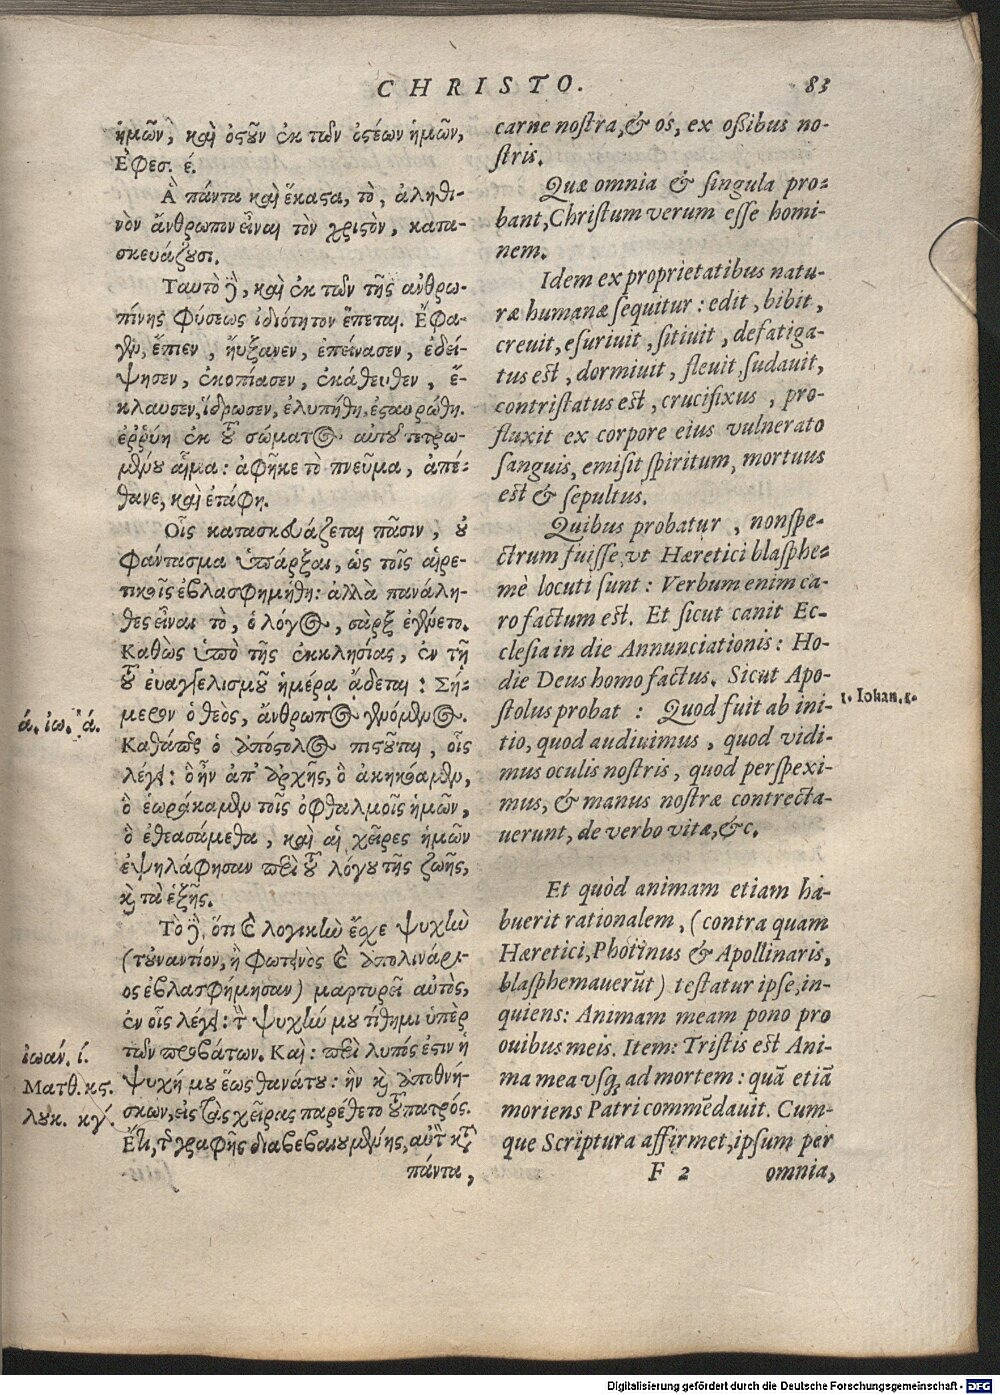 CHRISTO.
83
ἡμῶν, καὶ ὀϛοῦν ἐκ τῶν ὀϛέων ἡμῶν,
Ἐφεσ. έ.
Ἃ πάντα καὶ ἕκαϛα, τὸ, ἀληθι-
νὸν ἄνθρωπον εἶναι τὸν χριϛὸν, κατα-
σκευάζουσι.
Ταυτὸ δὲ, καὶ ἐκ τῶν τῆς ἀνθρω-
πίνης φύσεως ἰδιότητον ἕπεται. Ἔφα-
γεν, ἔπιεν, ἤυξανεν, ἐπείνασεν, ἐδεί-
ψησεν, ἐκοπίασεν, ἐκάθευθεν, ἔ-
κλαυσεν, ἵδρωσεν, ἐλυπήθη, ἐϛαυρώθη.
ἐῤῥύη ἐκ τοῦ σώματος αὐτοῦ τετρω-
μένου αἷμα: ἀφῆκε τὸ πνεῦμα, ἀπέ-
θανε, καὶ ἐτάφη.
Οἷς κατασκευάζεται πᾶσιν, οὐ
φάντασμα ὑπάρξαι, ὡς τοῖς αἱρε-
τικοῖς ἐβλασφημήθη: ἀλλὰ πανάλη-
θες εἶναι τὸ, ὁ λόγος, σὰρξ ἐγένετο.
Καθὼς ὑπὸ τῆς ἐκκλησίας, ἐν τῇ
τοῦ ἐυαγγελισμοῦ ἡμέρᾳ ἄδεται: Σή-
μερον ὁ θεὸς, ἄνθρωπος γενόμενος.
ά. ἰω. ά.
Καθάπερ ὁ ἀπόϛολος πιϛοῦται, οἷς
λέγει: ὃ ἦν ἀπ' ἀρχῆς, ὃ ἀκηκόαμεν,
ὃ ἑωράκαμεν τοῖς ὀφθαλμοῖς ἡμῶν,
ὃ ἐθεασάμεθα, καὶ αἱ χεῖρες ἡμῶν
ἐψηλάφησαν περὶ τοῦ λόγου τῆς ζωῆς,
καὶ τὰ ἑξῆς.
Τὸ δὲ, ὅτι καὶ λογικὴν ἔχε ψυχὴν
(τοὐναντίον, ἢ Φωτεινὸς καὶ ἀπολινάρι-
ος ἐβλασφήμησαν) μαρτυρεῖ αὐτὸς,
ἐν οἷς λέγει: τὴν ψυχήν μου τίθημι ὑπὲρ
ἰωάν. ί.
τῶν προβάτων. Καὶ: περὶ λυπός ἐϛιν ἡ
Ματθ. κϛ.
ψυχή μου ἕως θανάτου: ἣν καὶ ἀποθνή-
λουκ. κγ.
σκων, εἰς τὰς χεῖρας παρέθετο τοῦ πατρός.
Ἔτι, τῆς γραφῆς διαβεβαιουμένης, αὐτὸν κατὰ
πάντα,
carne nostra, & os, ex oßibus no-
stris.
Quæ omnia & singula pro-
bant, Christum verum esse homi-
nem.
Idem ex proprietatibus natu-
ræ humanæ sequitur: edit, bibit,
creuit, esuriuit, sitiuit, defatiga-
tus est, dormiuit, fleuit, sudauit,
contristatus est, crucifixus, pro-
fluxit ex corpore eius vulnerato
sanguis, emisit spiritum, mortuus
est & sepultus.
Quibus probatur, non spe-
ctrum fuisse, vt Hæretici blasphe-
mè locuti sunt: Verbum enim ca-
ro factum est. Et sicut canit Ec-
clesia in die Annunciationis: Ho-
die Deus homo factus. Sicut Apo-
1. Iohan.
stolus probat: Quod fuit ab ini-
tio, quod audiuimus, quod vidi-
mus oculis nostris, quod perspexi-
mus, & manus nostræ contrecta-
uerunt, de verbo vitæ, &c.
Et quòd animam etiam ha-
buerit rationalem, (contra quam
Hæretici, Photinus & Apollinaris,
blasphemauerūt) testatur ipse, in-
quiens: Animam meam pono pro
ouibus meis. Item: Tristis est Ani-
ma mea vsq; ad mortem: quā etiā
moriens Patri commēdauit. Cum-
que Scriptura affirmet, ipsum per
F 2
omnia,
Digitalisierung gefördert durch die Deutsche Forschungsgemeinschaft - DFG